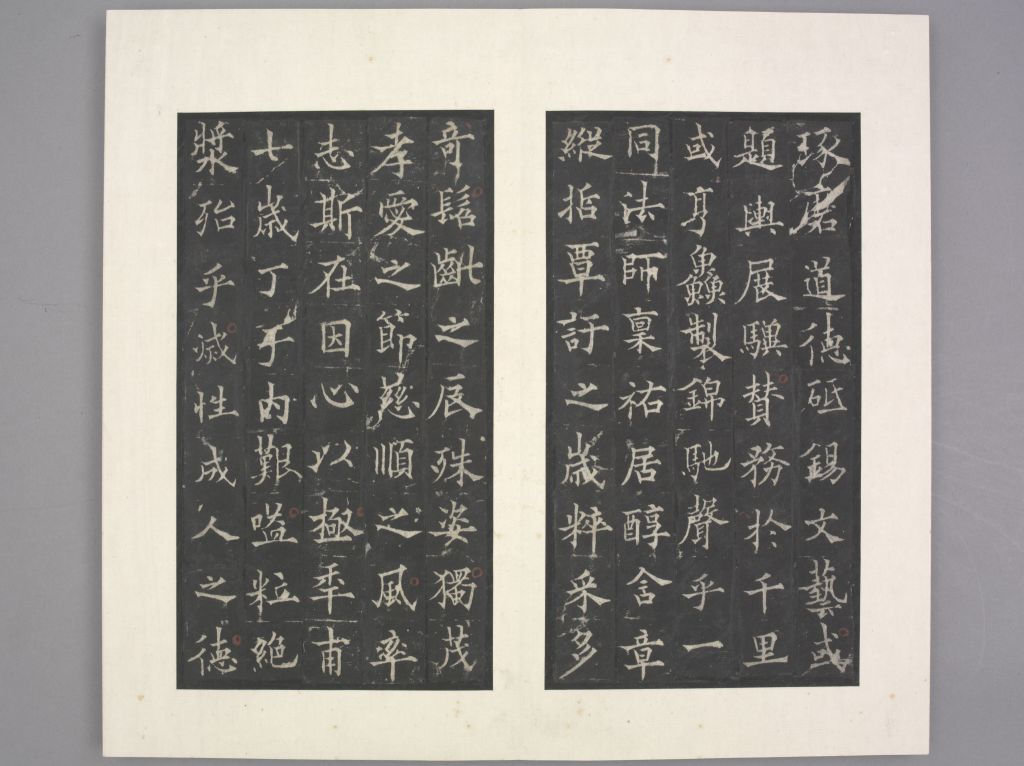 琢磨道德砥錫文藝或
題輿展驥贊務於千里
或亨鱻製錦馳聲乎一
同法師稟祐居醇含章
縱覃訏之歲粹采多
奇髫齔之辰殊姿獨茂
孝愛之節慈順之風率
志斯在因心以極年甫
七歲丁于內艱嗌粒絕
漿殆乎滅性成人之德